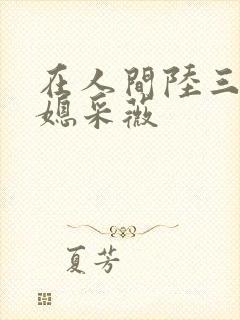 在人間陸三
媳采薇
夏芳